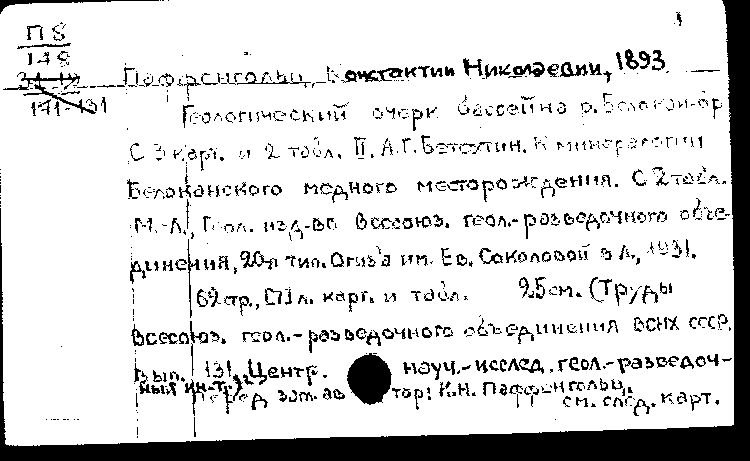 П 8
148
171-131
Паффенгольц, Константин Николаевич, 1893
Геологический очерк бассейна р. Белокан-ор
С 3 карт. и 2 табл. II. А.Г. Бетехтин. К минералогии
Белоканского медного месторождения. С 2 табл.
М.-Л., Геол. изд-во Всесоюз. геол.-разведочного объе-
динения, 20-я тип. Огиз'а им. Ев. Соколовой в Л., 1931.
62 стр., карт. и табл. 25 см. (Труды
Всесоюз. геол.-разведочного объединения ВСНХ СССР.
Вып. 131. Центр. науч.-исслед. геол.-разведоч-
ный ин-т.
Перед заг. автор: К.Н. Паффенгольц.
см. след. карт.